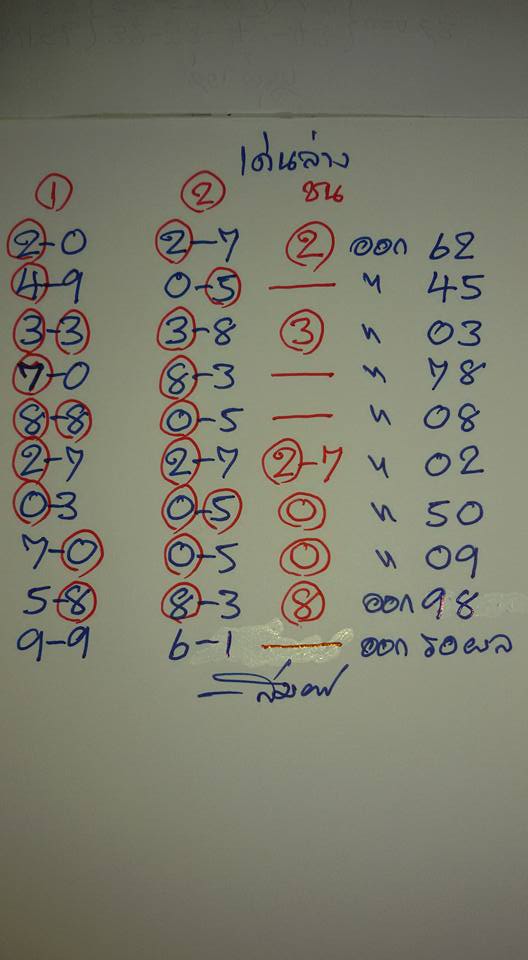 เด่นล่าง
1 2 ชน
2-0 2-7 2 ออก 62
4-9 0-5 — " 45
3-3 3-8 3 " 03
7-0 8-3 — " 78
8-8 0-5 — " 08
2-7 2-7 2-7 " 02
0-3 0-5 0 " 50
7-0 0-5 0 " 09
5-8 8-3 8 ออก 98
9-9 6-1 — ออก รอผล